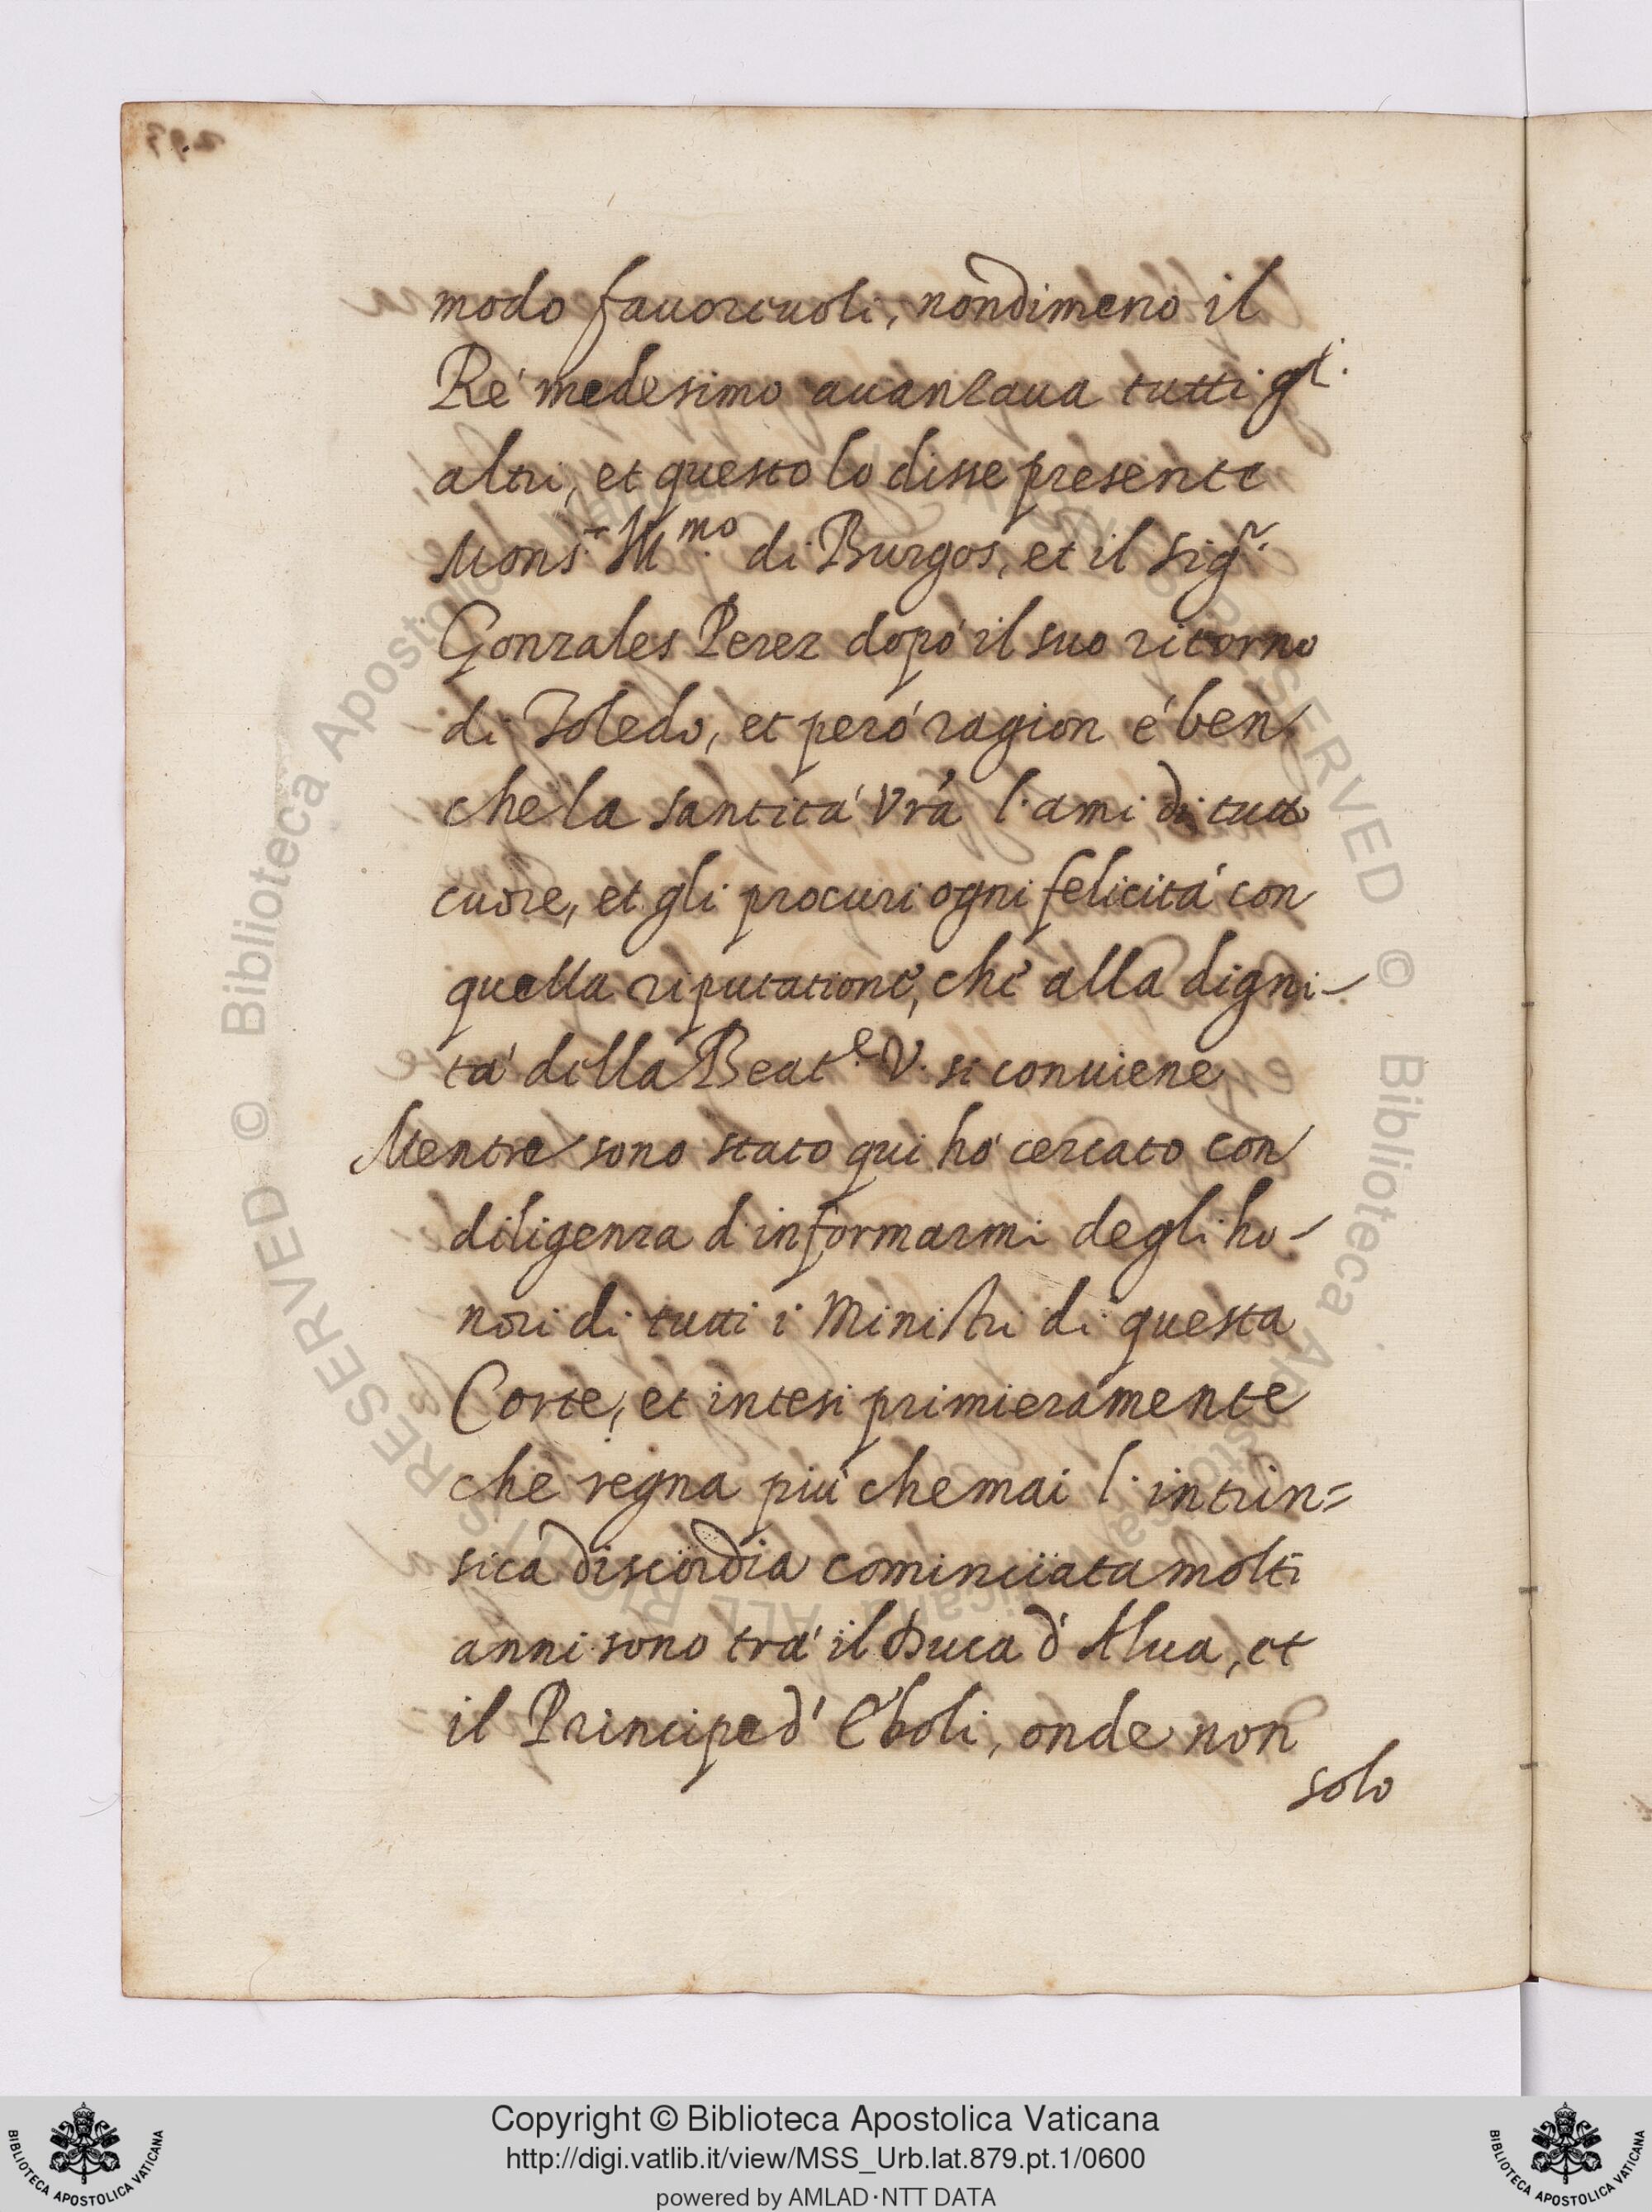 modo fauoreuoli, nondimeno il
Ré medesimo auanzaua tutti gl.
altri, et questo lo disse presente
Mons.r Ill.mo di Burgos, et il sig.r
Gonzales Perez dopó il suo ritorno
di Toledo, et peró ragion é ben
che la santitá Vrã l'ami di tutto
cuore, et gli procuri ogni felicitá con
quella riputatione, che alla digni-
tá della Beat.e V. si conuiene
Mentre sono stato qui hó cercato con
diligenza d'informarmi degli ho-
nori di tutti i Ministri di questa
Corte, et intesi primieramente
che regna piú che mai l'intrin=
sica discordia cominciata molti
anni sono trá il Duca d'Alua, et
il Principe d'Eboli, onde non
solo
© Biblioteca Apostolica Vaticana ALL RIGHTS RESERVED
Copyright © Biblioteca Apostolica Vaticana
http://digi.vatlib.it/view/MSS_Urb.lat.879.pt.1/0600
powered by AMLAD·NTT DATA
BIBLIOTECA APOSTOLICA VATICANA
BIBLIOTECA APOSTOLICA VATICANA